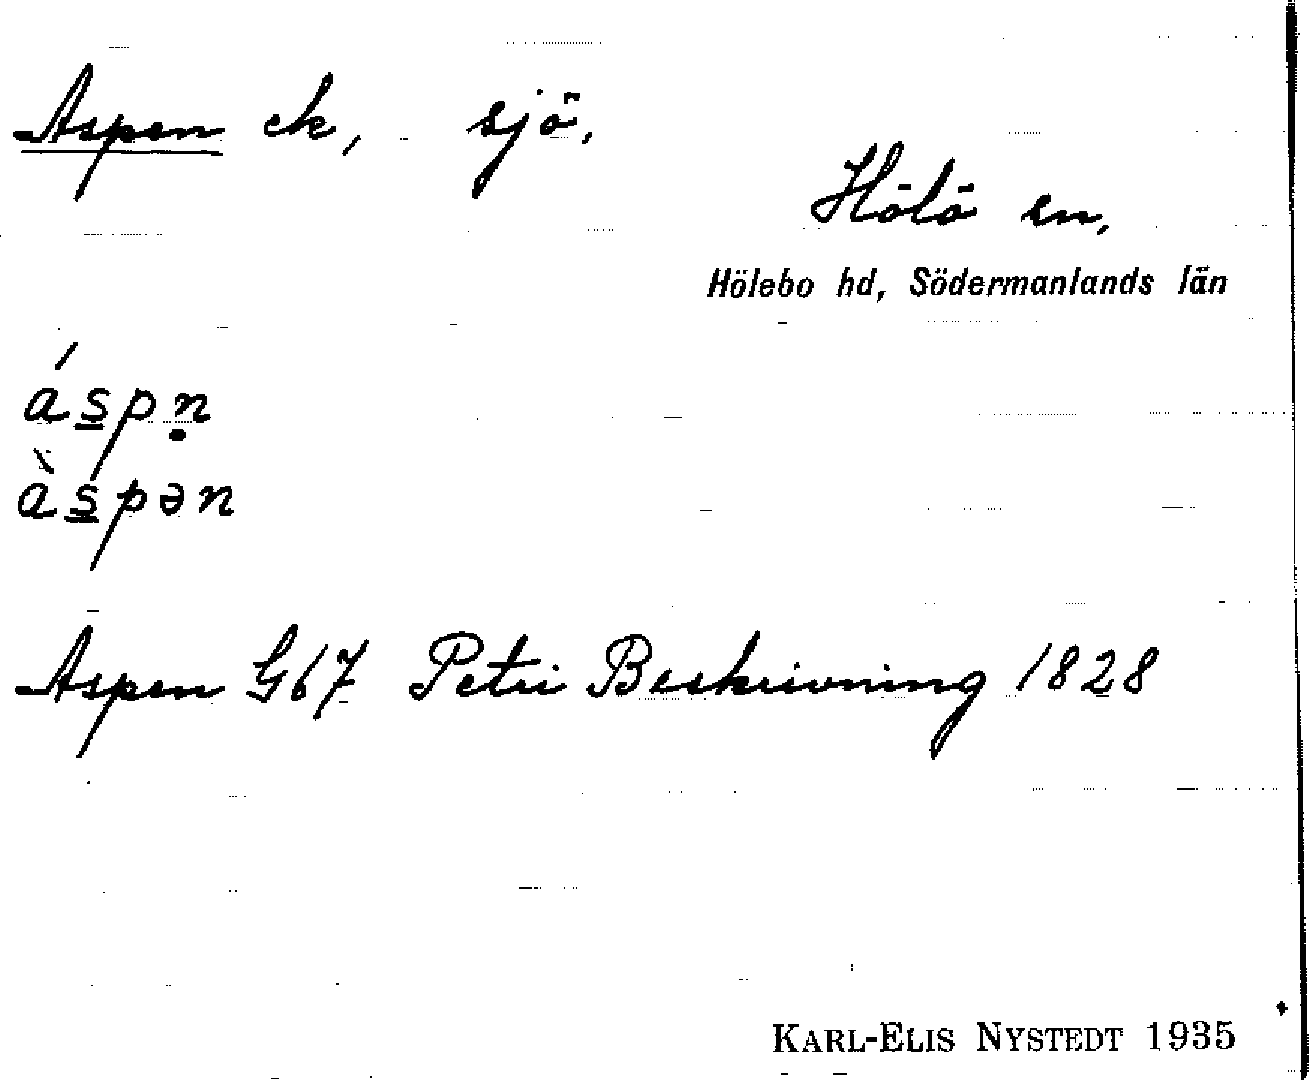 Aspen ek, sjö.
Hölö sn,
Hölebo hd, Södermanlands län
áspṇ
àspən
Aspen G67 Petri Beskrivning 1828
KARL-ELIS NYSTEDT 1935